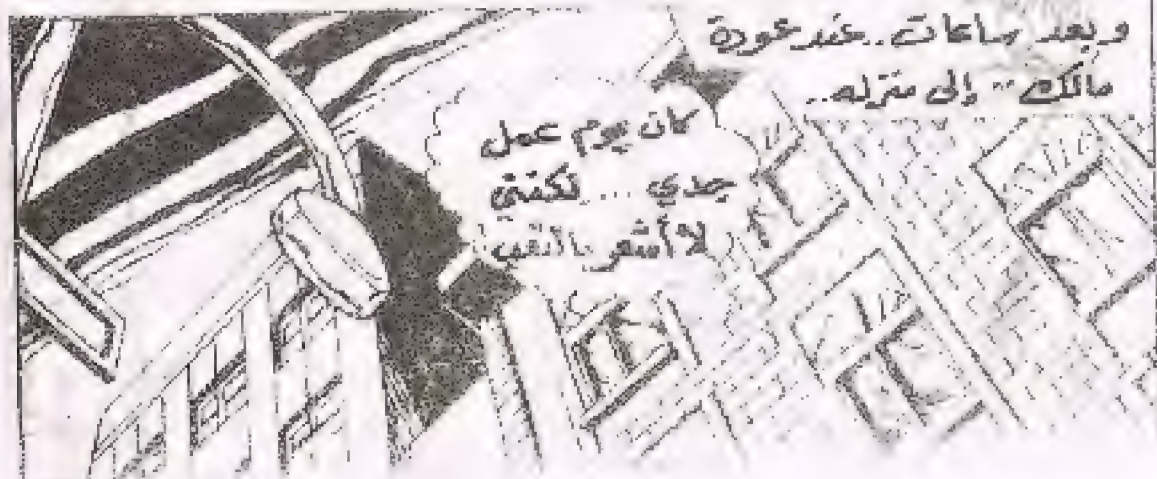 و بعد ساعات.. عند عودة
مالك .. إلى منزله..
كان يوم عمل
جدي ... لكنني
لا أشعر بالتعب